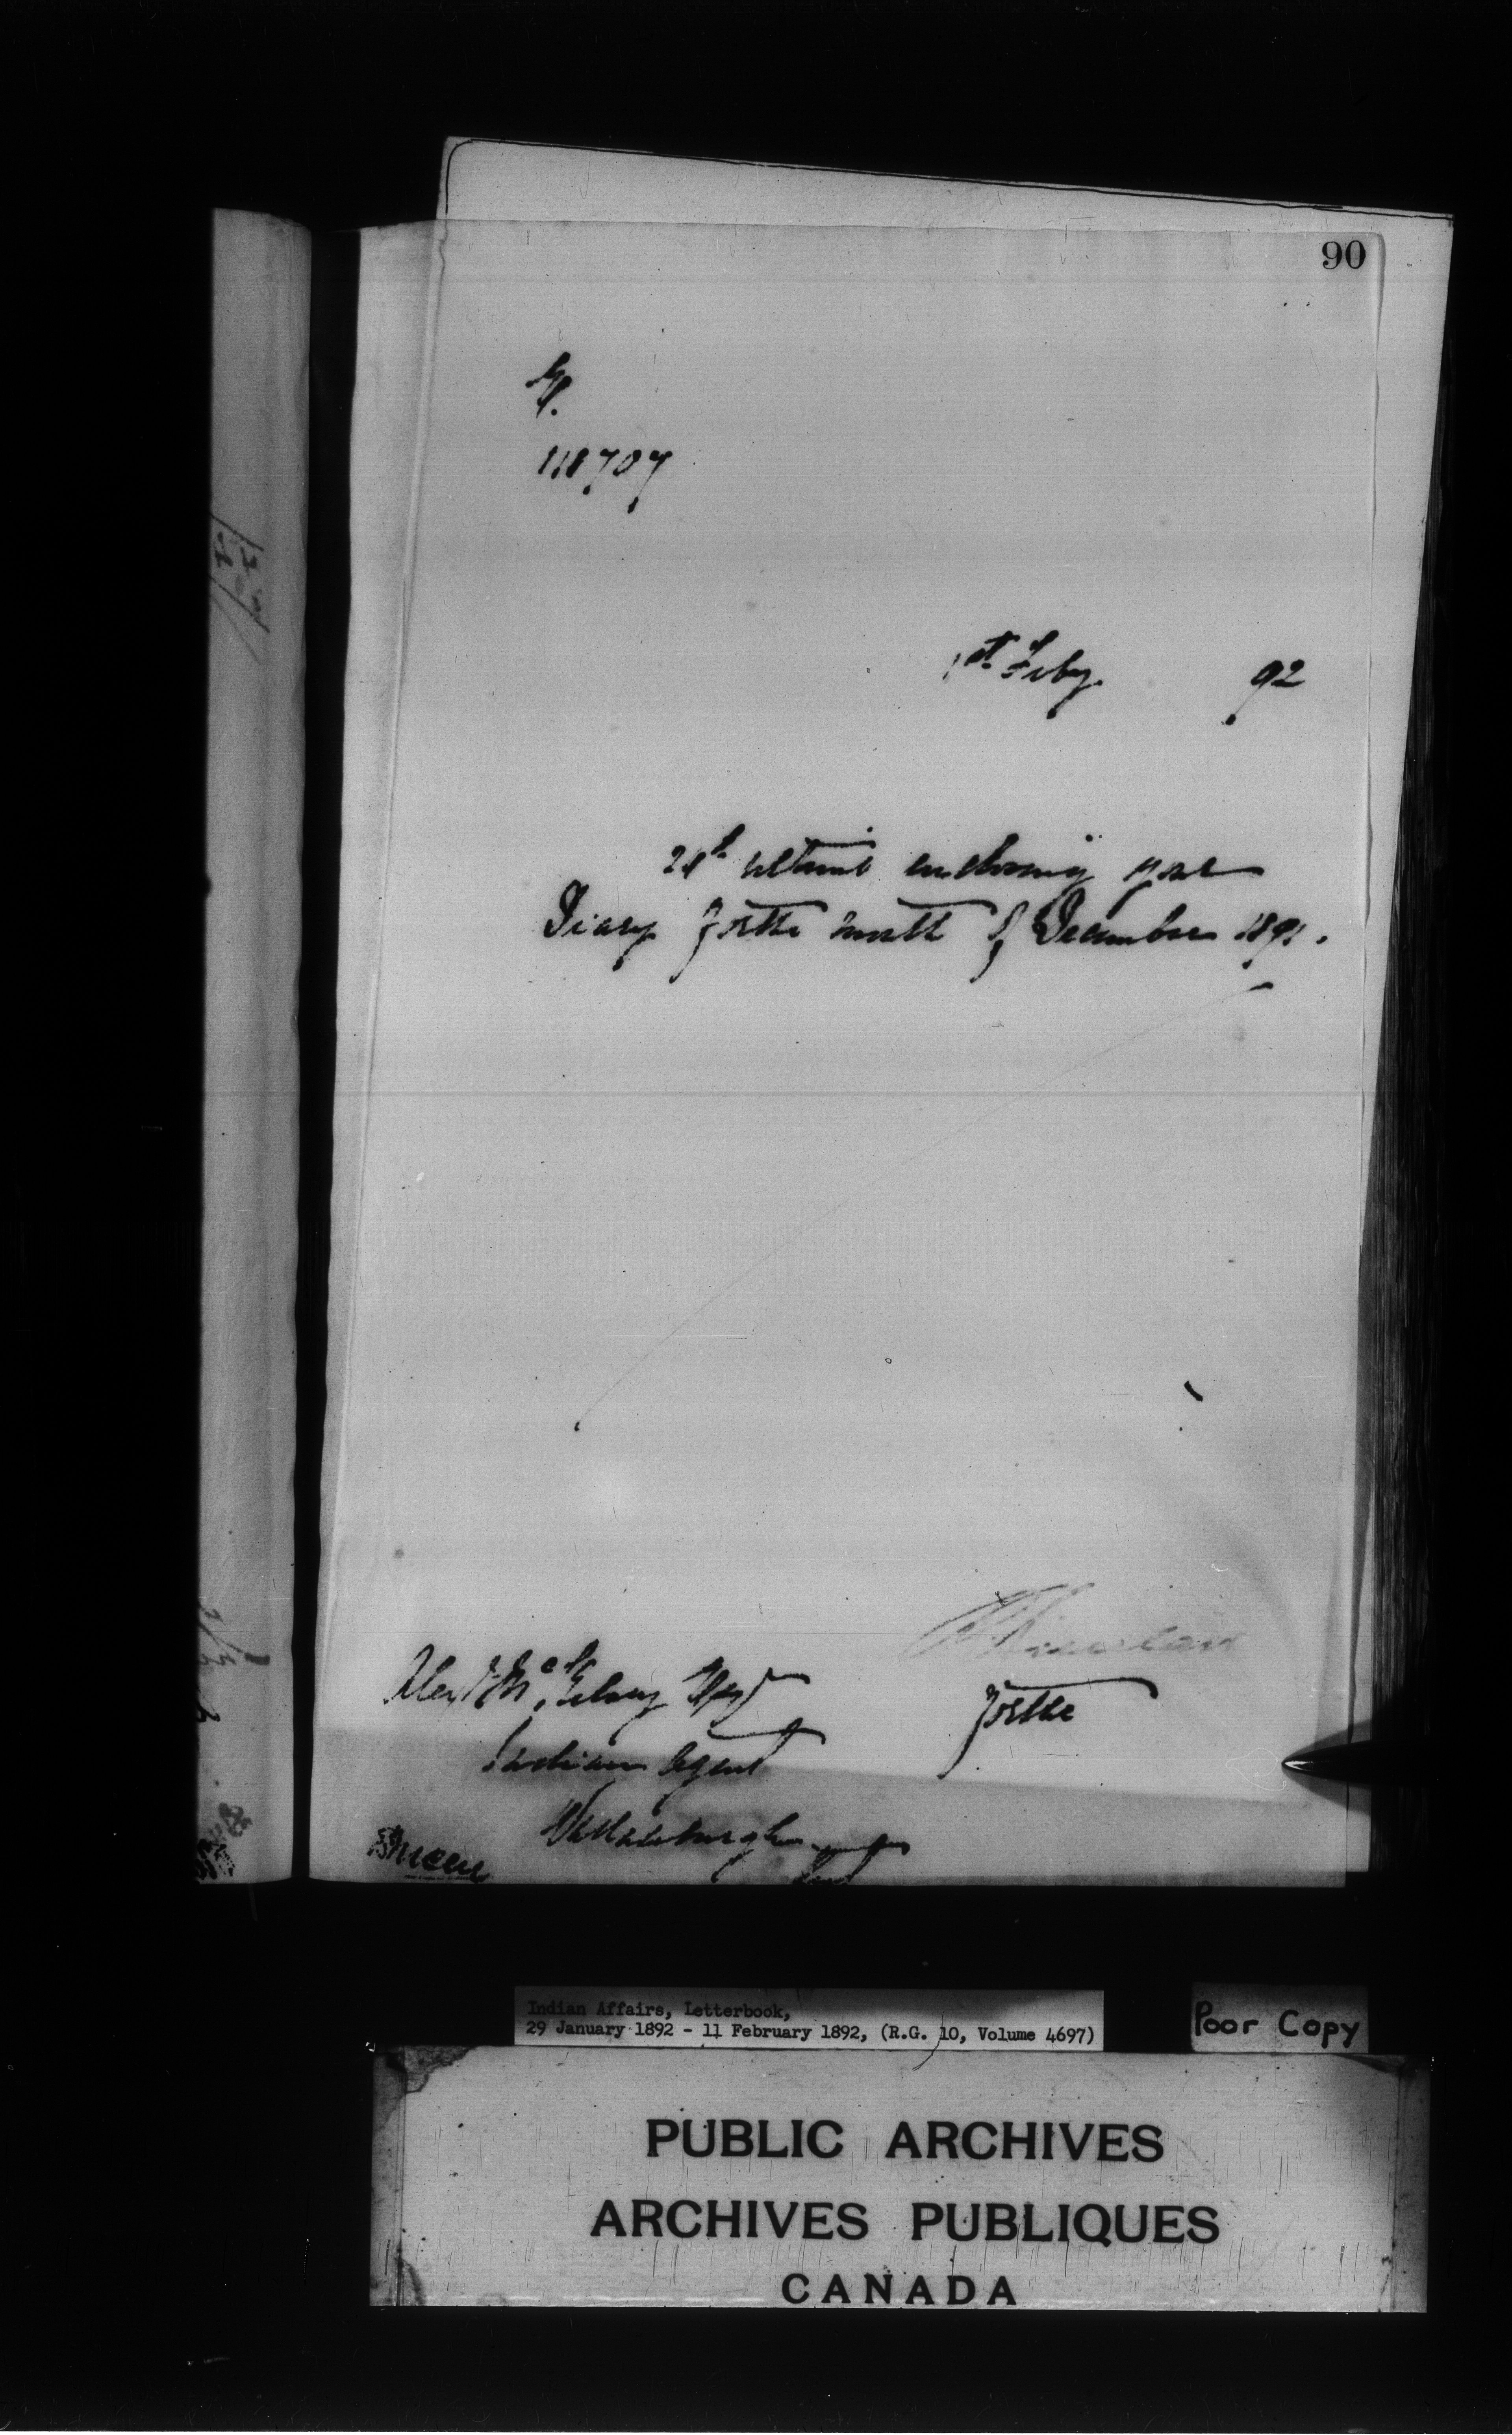 90
118707
1st Feby. 92
28th ultimo enclosing your
Diary for the month of December 1891.
Alex McKelvey Esq
for the
Indian Agent
Wallaceburgh
Ont
Indian Affairs, Letterbook,
29 January 1892 - 11 February 1892, (R.G. 10, Volume 4697)
Poor Copy
PUBLIC ARCHIVES
ARCHIVES PUBLIQUES
CANADA